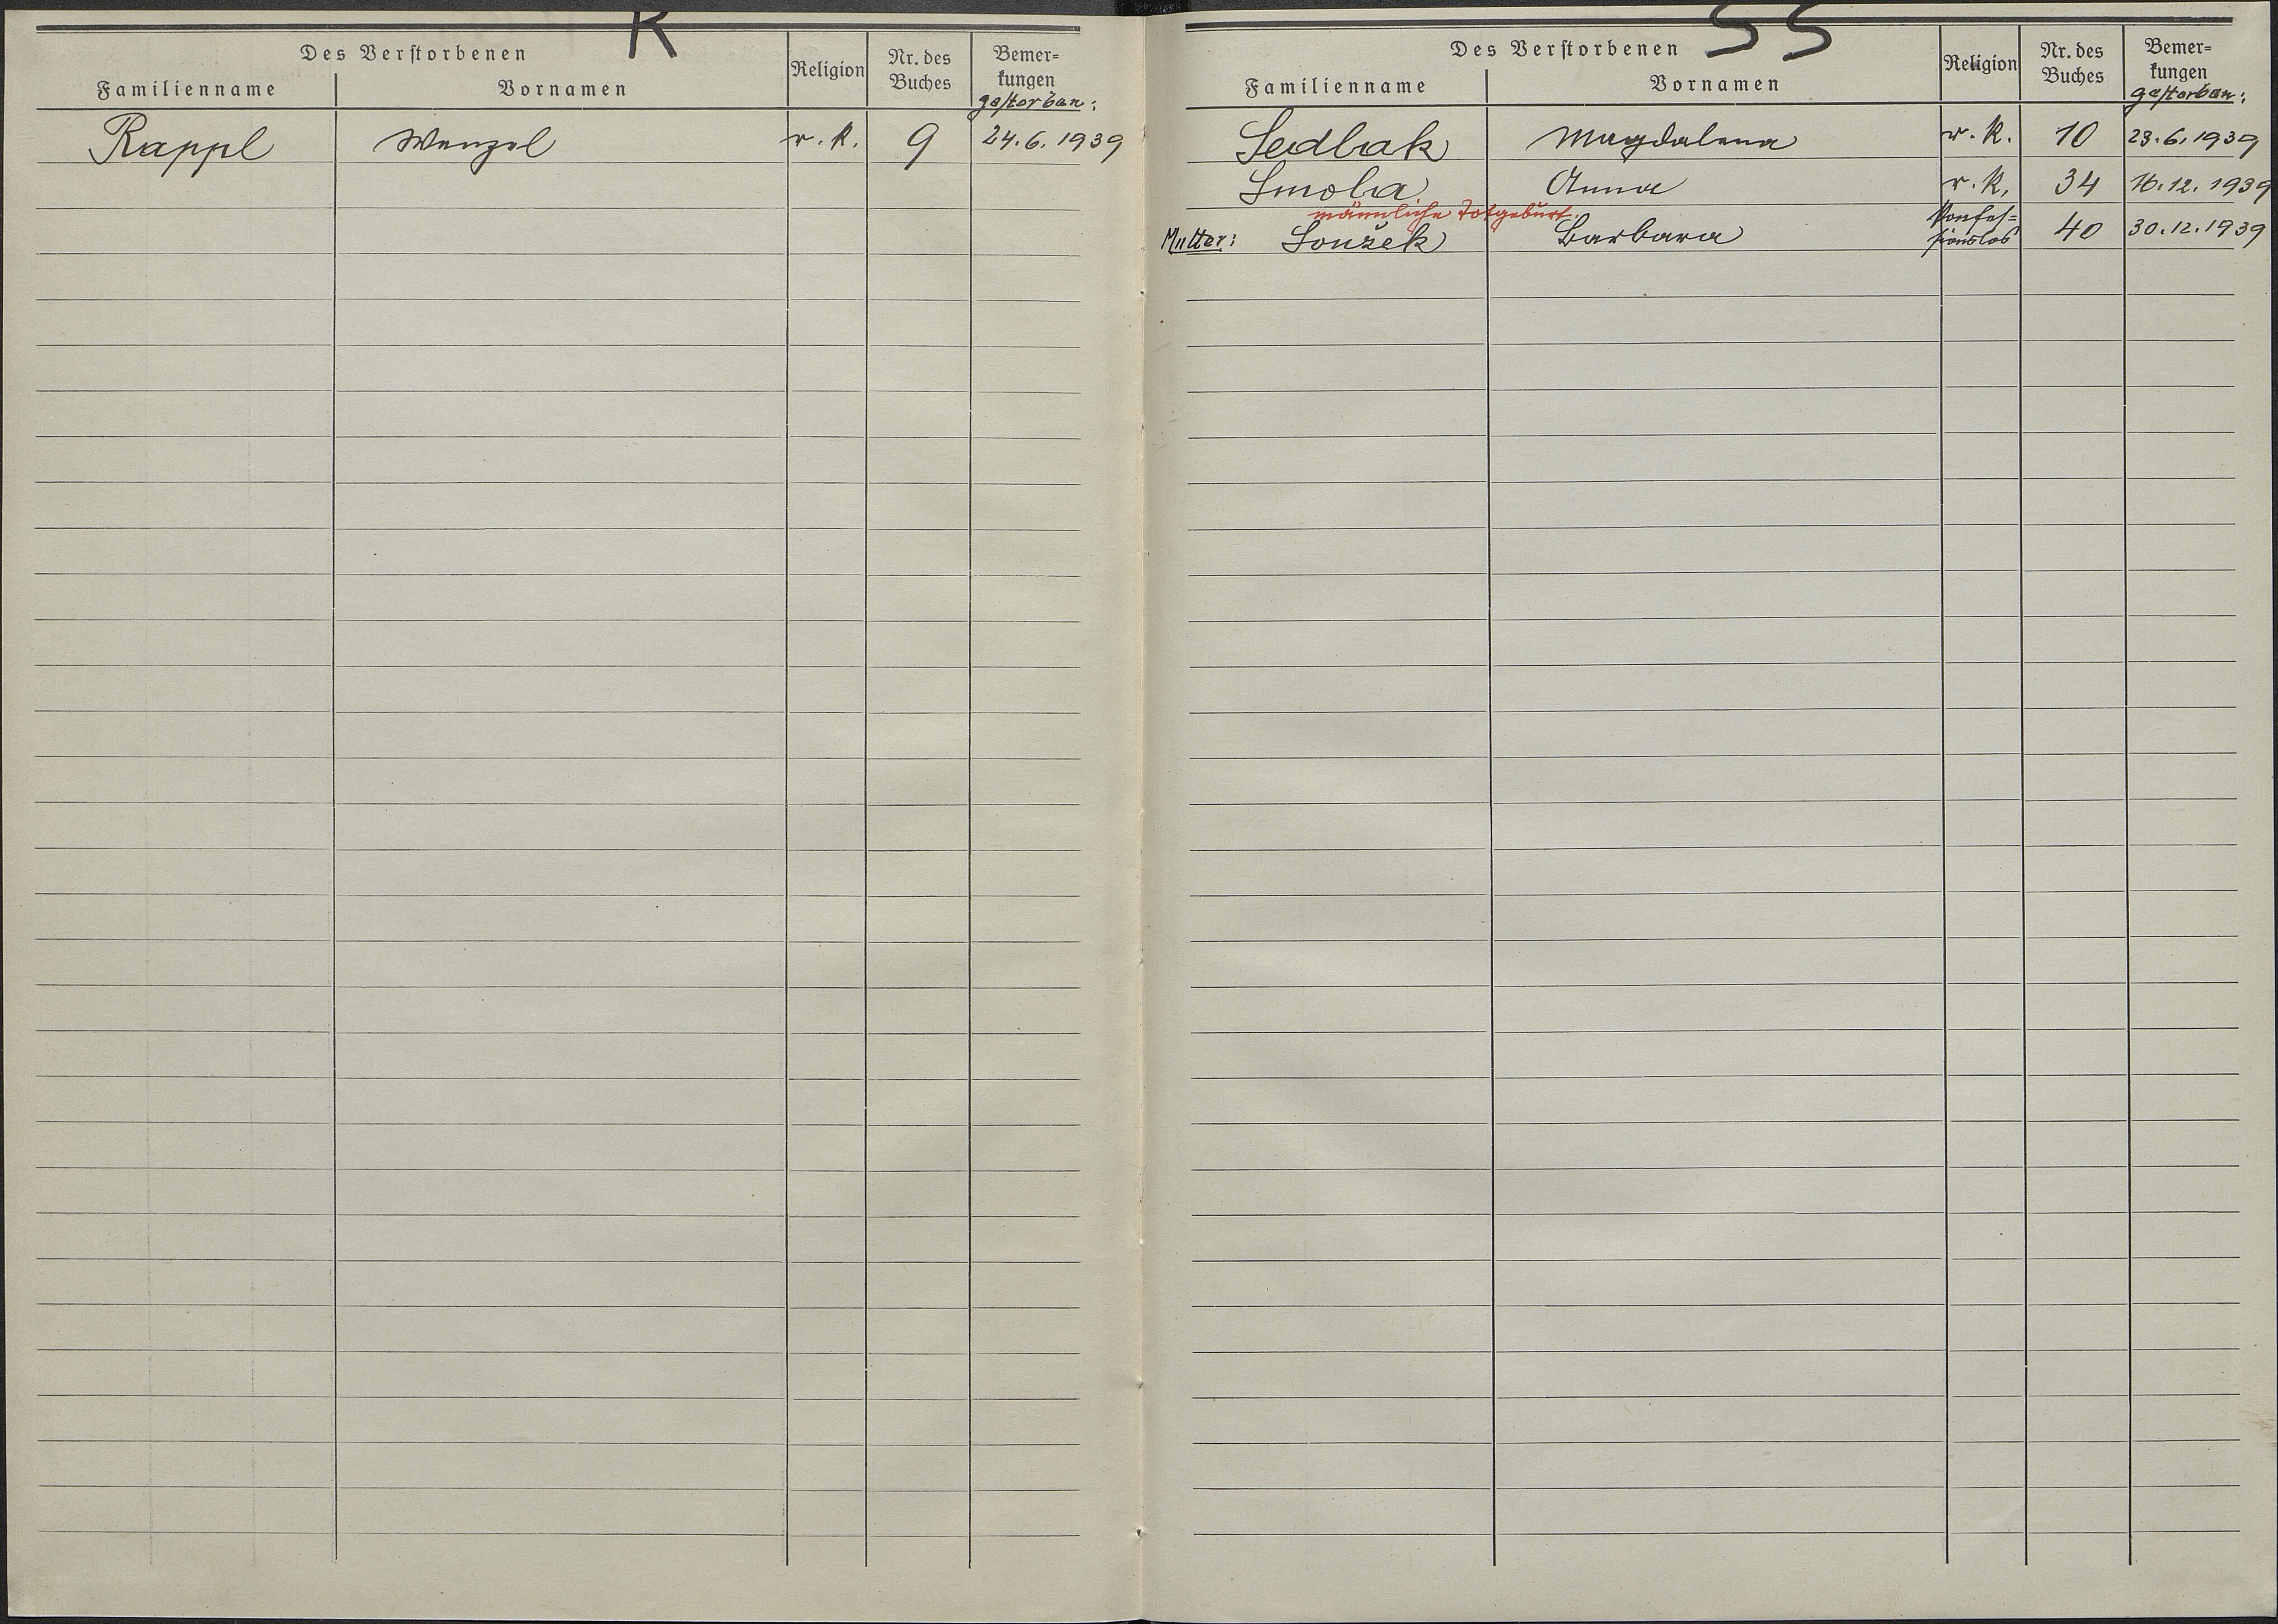 R
Des Verstorbenen
Familienname Vornamen Religion Nr. des Buches Bemer=kungen
gestorben:
Rappl Wenzel r. k. 9 24.6.1939
S S
Des Verstorbenen
Familienname Vornamen Religion Nr. des Buches Bemer=kungen
gestorben:
Sedlak Magdalena r. k. 10 28.6.1939
Smola Anna r. k. 34 16.12.1939
männliche Totgeburt.
Mutter: Soušek Barbara Konfes=sionslos 40 30.12.1939